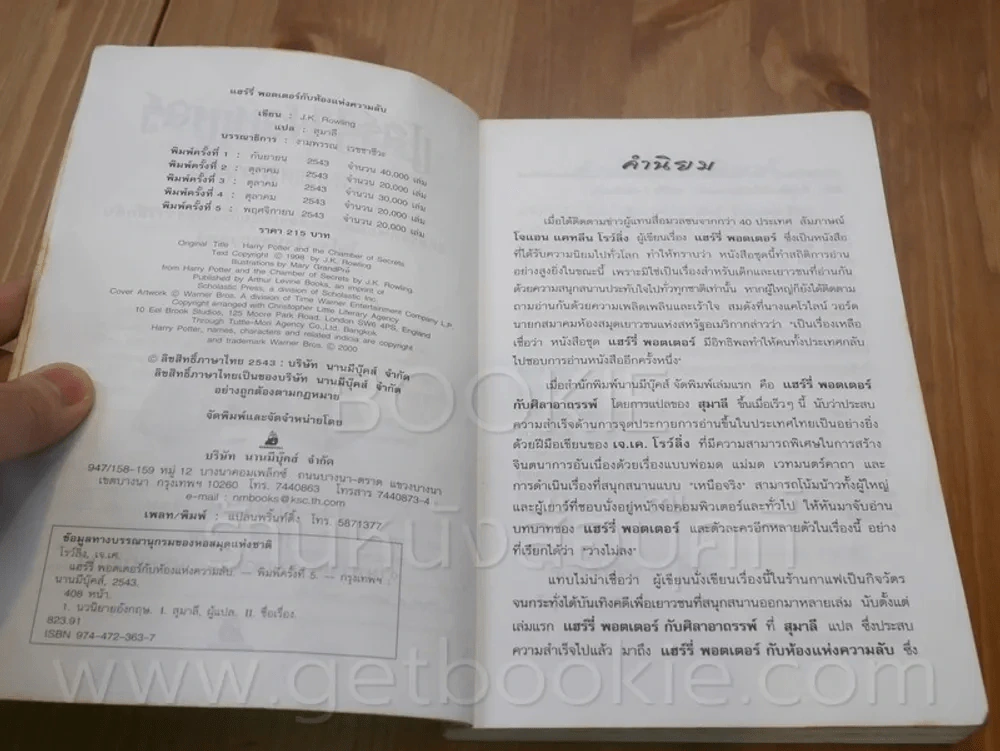 แฮร์รี่ พอตเตอร์กับห้องแห่งความลับ
เขียน : J.K. Rowling
แปล : สุมาลี
บรรณาธิการ : งามพรรณ เวชชาชีวะ
พิมพ์ครั้งที่ 1 : กันยายน 2543 จำนวน 40,000 เล่ม
พิมพ์ครั้งที่ 2 : ตุลาคม 2543 จำนวน 20,000 เล่ม
พิมพ์ครั้งที่ 3 : ตุลาคม 2543 จำนวน 30,000 เล่ม
พิมพ์ครั้งที่ 4 : ตุลาคม 2543 จำนวน 20,000 เล่ม
พิมพ์ครั้งที่ 5 : พฤศจิกายน 2543 จำนวน 20,000 เล่ม
ราคา 215 บาท
Original Title : Harry Potter and the Chamber of Secrets
Text Copyright © 1998 by J.K. Rowling
Illustrations by Mary GrandPré
from Harry Potter and the Chamber of Secrets by J.K. Rowling.
Published by Arthur Levine Books, an imprint of
Scholastic Press, a division of Scholastic Inc.
Cover Artwork © Warner Bros. A division of Time Warner Entertainment Company L.P.
Copyright arranged with Christopher Little Literary Agency
10 Eel Brook Studios, 125 Moore Park Road, London SW6 4PS, England
Through Tuttle-Mori Agency Co.,Ltd, Bangkok.
Harry Potter, names, characters and related indicia are copyright
and trademark Warner Bros. © 2000
© ลิขสิทธิ์ภาษาไทย 2543 : บริษัท นานมีบุ๊คส์ จำกัด
ลิขสิทธิ์ภาษาไทยเป็นของบริษัท นานมีบุ๊คส์ จำกัด
อย่างถูกต้องตามกฎหมาย
จัดพิมพ์และจัดจำหน่ายโดย
บริษัท นานมีบุ๊คส์ จำกัด
947/158-159 หมู่ 12 บางนาคอมเพล็กซ์ ถนนบางนา-ตราด แขวงบางนา
เขตบางนา กรุงเทพฯ 10260 โทร. 7440863 โทรสาร 7440873-4
e-mail : nmbooks@ksc.th.com
เพลท/พิมพ์ : แปลนพริ้นท์ติ้ง โทร. 5871377
ข้อมูลทางบรรณานุกรมของหอสมุดแห่งชาติ
โรว์ลิ่ง, เจ.เค.
แฮร์รี่ พอตเตอร์กับห้องแห่งความลับ. — พิมพ์ครั้งที่ 5. — กรุงเทพฯ :
นานมีบุ๊คส์, 2543.
408 หน้า.
1. นวนิยายอังกฤษ. I. สุมาลี, ผู้แปล. II. ชื่อเรื่อง.
823.91
ISBN 974-472-363-7
คำนิยม
เมื่อได้ติดตามข่าวผู้แทนสื่อมวลชนจากกว่า 40 ประเทศ สัมภาษณ์
โจแอน แคทลีน โรว์ลิ่ง ผู้เขียนเรื่อง แฮร์รี่ พอตเตอร์ ซึ่งเป็นหนังสือ
ที่ได้รับความนิยมไปทั่วโลก ทำให้ทราบว่า หนังสือชุดนี้ทำสถิติการอ่าน
อย่างสูงยิ่งในขณะนี้ เพราะมิใช่เป็นเรื่องสำหรับเด็กและเยาวชนที่อ่านกัน
ด้วยความสนุกสนานประทับใจไปทั่วทุกชาติเท่านั้น หากผู้ใหญ่ก็ยังได้ติดตาม
ถามอ่านกันด้วยความเพลิดเพลินและเร้าใจ สมดังที่นางแคโรไลน์ วอร์ด
นายกสมาคมห้องสมุดเยาวชนแห่งสหรัฐอเมริกากล่าวว่า "เป็นเรื่องเหลือ
เชื่อว่า หนังสือชุด แฮร์รี่ พอตเตอร์ มีอิทธิพลทำให้คนทั้งประเทศกลับ
ไปชอบการอ่านหนังสืออีกครั้งหนึ่ง"
เมื่อสำนักพิมพ์นานมีบุ๊คส์ จัดพิมพ์เล่มแรก คือ แฮร์รี่ พอตเตอร์
กับศิลาอาถรรพ์ โดยการแปลของ สุมาลี ขึ้นเมื่อเร็วๆ นี้ นับว่าประสบ
ความสำเร็จด้านการจุดประกายการอ่านขึ้นในประเทศไทยเป็นอย่างยิ่ง
ด้วยฝีมือเขียนของ เจ.เค. โรว์ลิ่ง ที่มีความสามารถพิเศษในการสร้าง
จินตนาการอันเนื่องด้วยเรื่องแบบพ่อมด แม่มด เวทมนตร์คาถา และ
การดำเนินเรื่องที่สนุกสนานแบบ "เหนือจริง" สามารถโน้มน้าวทั้งผู้ใหญ่
และผู้เยาว์ที่ชอบนั่งอยู่หน้าจอคอมพิวเตอร์และทั่วไป ให้หันมาจับอ่าน
บทบาทของ แฮร์รี่ พอตเตอร์ และตัวละครอีกหลายตัวในเรื่องนี้ อย่าง
ที่เรียกได้ว่า "วางไม่ลง"
แทบไม่น่าเชื่อว่า ผู้เขียนนั่งเขียนเรื่องนี้ในร้านกาแฟเป็นกิจวัตร
จนกระทั่งได้บันเทิงคดีเพื่อเยาวชนที่สนุกสนานออกมาหลายเล่ม นับตั้งแต่
เล่มแรก แฮร์รี่ พอตเตอร์ กับศิลาอาถรรพ์ ที่ สุมาลี แปล ซึ่งประสบ
ความสำเร็จไปแล้ว มาถึง แฮร์รี่ พอตเตอร์ กับห้องแห่งความลับ ซึ่ง
BOOKIE
www.getbookie.com